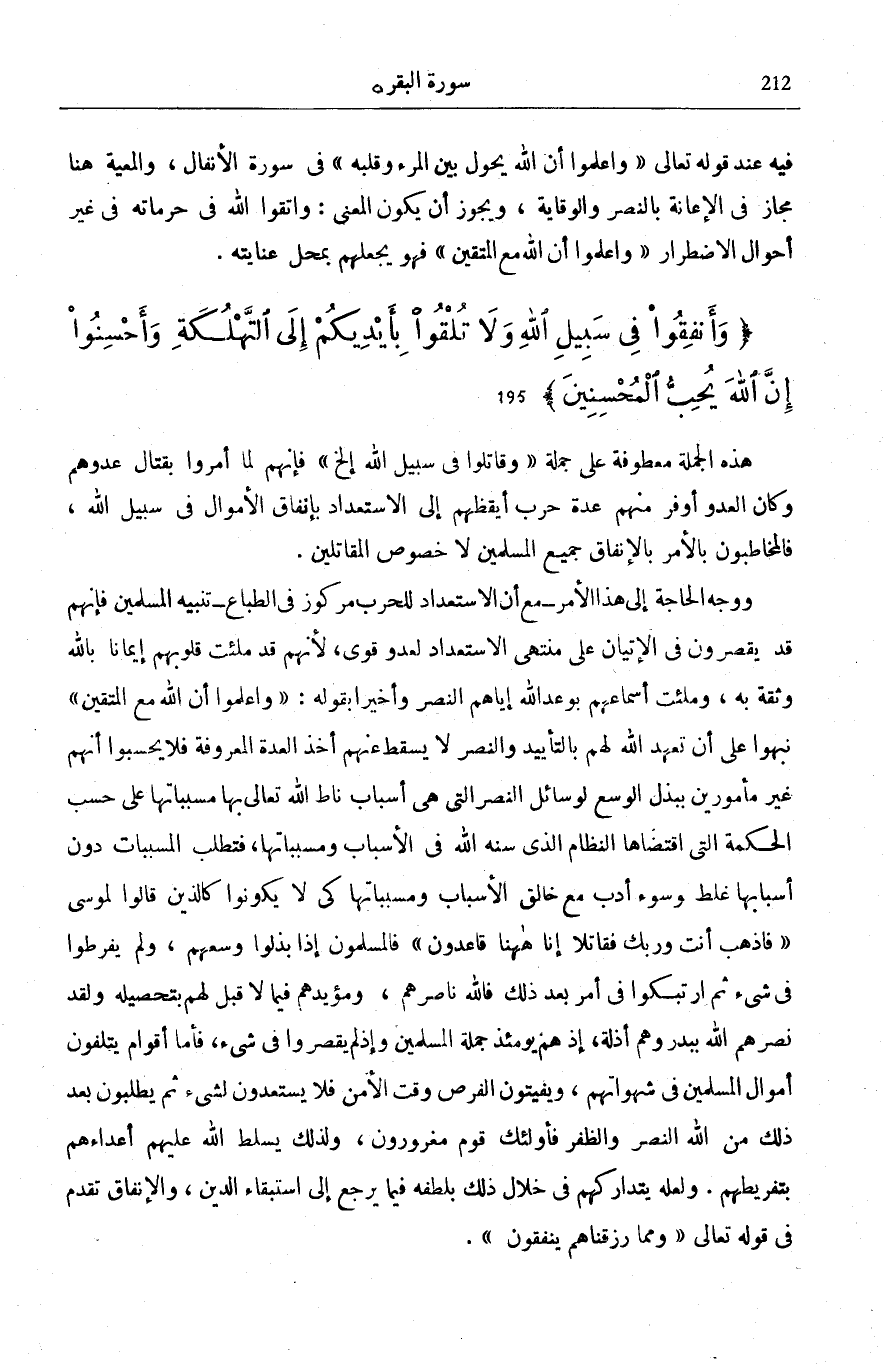 212
سورة البقره
فيه عند قوله تعالى « واعلموا أن الله يحول بين المرء وقلبه » فى سورة الأنفال ، والمعية هنا
مجاز فى الإعانة بالنصر والوقاية ، ويجوز أن يكون المعنى : واتقوا الله فى حرماته فى غير
أحوال الاضطرار « واعلموا أن الله مع المتقين » فهو يجعلهم بمحل عنايته .
﴿ وَأَنفِقُواْ فِى سَبِيلِ ٱللَّهِ وَلَا تُلْقُواْ بِأَيْدِيكُمْ إِلَى ٱلتَّهْلُـكَةِ وَأَحْسِنُواْ
إِنَّ ٱللَّهَ يُحِبُّ ٱلْمُحْسِنِينَ ﴾ 195
هذه الجملة معطوفة على جملة « وقاتلوا فى سبيل الله إلخ » فإنهم لما أمروا بقتال عدوهم
وكان العدو أوفر منهم عدة حرب أيقظهم إلى الاستعداد بإنفاق الأموال فى سبيل الله ،
فالمخاطبون بالأمر بالإنفاق جميع المسلمين لا خصوص المقاتلين .
ووجه الحاجة إلى هذا الأمر ــ مع أن الاستعداد للحرب مركوز فى الطباع ــ تنبيه المسلمين فإنهم
قد يقصرون فى الإتيان على منتهى الاستعداد لعدو قوى، لأنهم قد ملئت قلوبهم إيمانا بالله
وثقة به ، وملئت أسماعهم بوعد الله إياهم النصر وأخيرا بقوله : « واعلموا أن الله مع المتقين»
نبهوا على أن تعهد الله لهم بالتأييد والنصر لا يسقط عنهم أخذ العدة المعروفة فلا يحسبوا أنهم
غير مأمورين ببذل الوسع لوسائل النصر التى هى أسباب ناط الله تعالى بها مسبباتها على حسب
الحكمة التى اقتضاها النظام الذى سنه الله فى الأسباب ومسبباتها، فتطلب المسببات دون
أسبابها غلط وسوء أدب مع خالق الأسباب ومسبباتها كى لا يكونوا كالذين قالوا لموسى
« فاذهب أنت وربك فقاتلا إنا هٰهنا قاعدون » فالمسلمون إذا بذلوا وسعهم ، ولم يفرطوا
فى شىء ثم ارتبكوا فى أمر بعد ذلك فالله ناصرهم ، ومؤيدهم فيما لا قبل لهم بتحصيله ولقد
نصرهم الله ببدر وهم أذلة، إذ هم يومئذ جملة المسلمين وإذ لم يقصروا فى شىء، فأما أقوام يتلفون
أموال المسلمين فى شهواتهم ، ويفيتون الفرص وقت الأمن فلا يستعدون لشىء ثم يطلبون بعد
ذلك من الله النصر والظفر فأولئك قوم مغرورون ، ولذلك يسلط الله عليهم أعداءهم
بتفريطهم . ولعله يتداركهم فى خلال ذلك بلطفه فيما يرجع إلى استبقاء الدين ، والإنفاق تقدم
فى قوله تعالى « ومما رزقناهم ينفقون » .